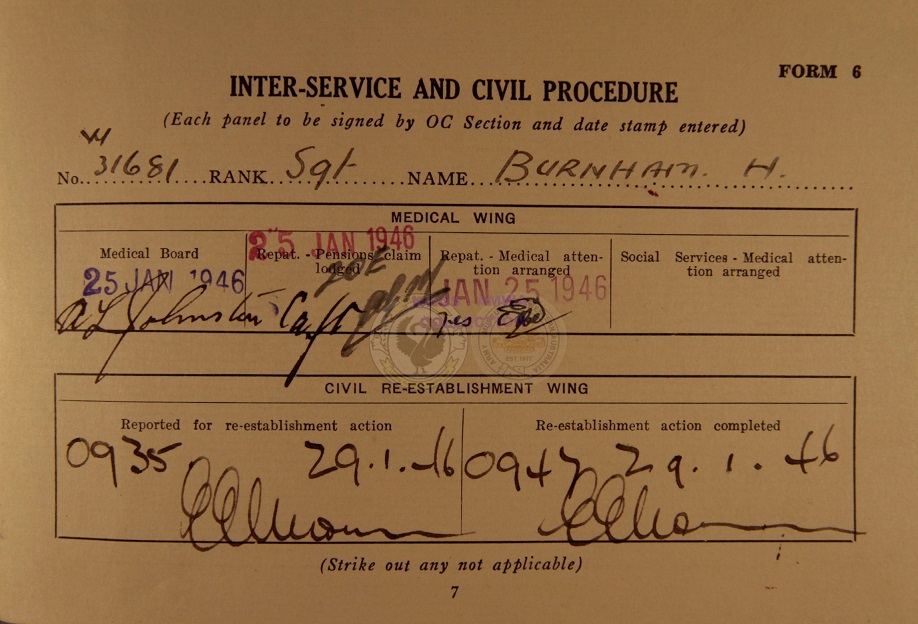 FORM 6
INTER-SERVICE AND CIVIL PROCEDURE
(Each panel to be signed by OC Section and date stamp entered)
No. 31681 RANK Sgt NAME BURNHAM. H.
MEDICAL WING
Medical Board
25 JAN 1946
A L Johnston Capt
25 JAN 1946
Repat. - Pensions claim
lodged
Repat. - Medical atten-
tion arranged
JAN 25 1946
Yes
Social Services - Medical atten-
tion arranged
CIVIL RE-ESTABLISHMENT WING
Reported for re-establishment action
0935 29.1.46
Re-establishment action completed
0947 29.1.46
(Strike out any not applicable)
7